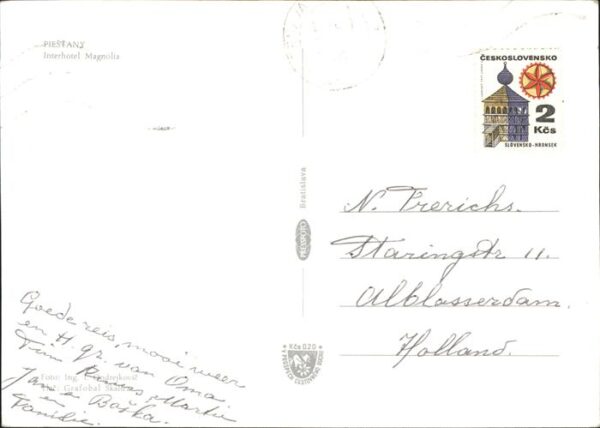 PIEŠŤANY
Interhotel Magnolia
ČESKOSLOVENSKO
2
Kčs
SLOVENSKO-HRONSEK
Bratislava
PRESSFOTO
N. Frerichs.
Staringstr 11.
Alblasserdam.
Holland.
Goede reis, mooi weer
en H. gr. van Oma
Tim
Jan en Baška.
en
Familie.
Foto: Ing. J.
Tlač: Grafobal Skalica
Kčs 0,20